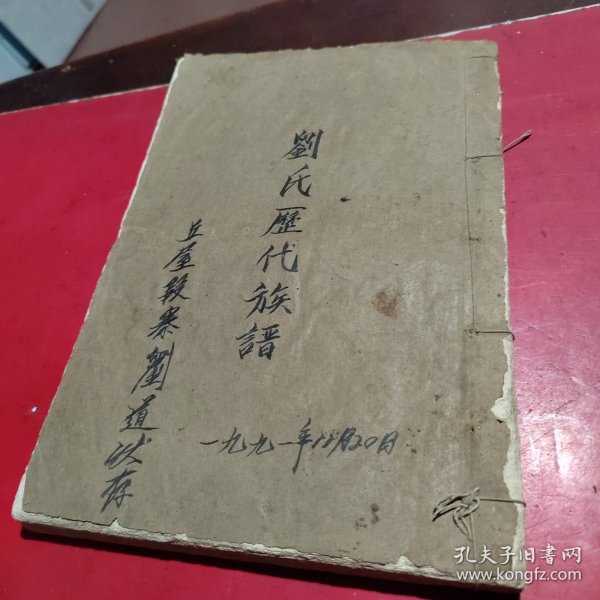 劉氏歷代族譜
丘屋段寨劉道洪存
一九九一年12月20日
孔夫子旧书网
www.kongfz.com